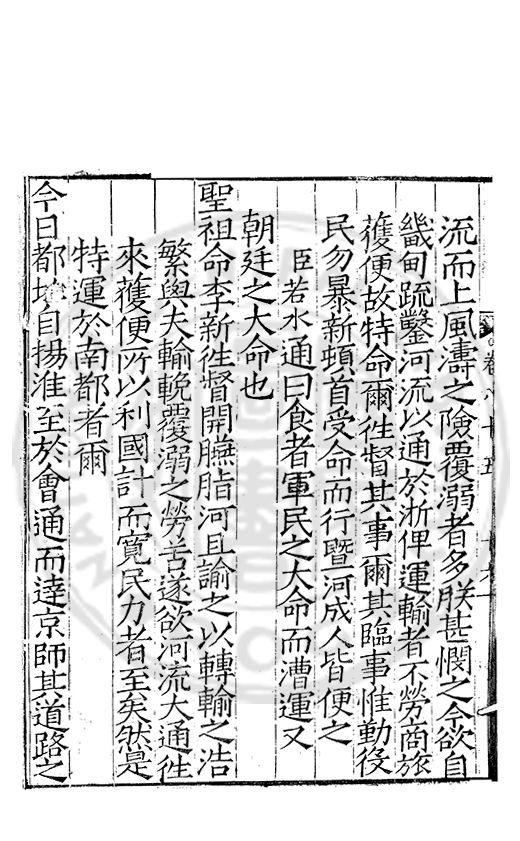 流而上風濤之險覆溺者多朕甚憫之今欲自
畿甸疏鑿河流以通於浙俾運輸者不勞商旅
獲便故特命爾徃督其事爾其臨事惟勤役
民勿暴新頓首受命而行暨河成人皆便之
臣若水通曰食者軍民之大命而漕運又
朝廷之大命也
聖祖命李新徃督開臙脂河且諭之以轉輸之浩
繁與夫輸輓覆溺之勞苦遂欲河流大通徃
來獲便所以利國計而寬民力者至矣然是
特運於南都者爾
今日都 自揚淮至於會通而逹京師其道路之
卷八十五